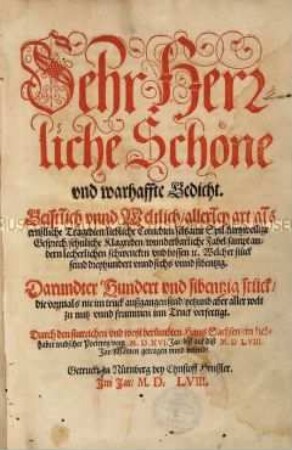 Sehr Herr
liche Schöne
vnd warhaffte Gedicht.
Geistlich vnnd Weltlich/ allerley art/ als
ernstliche Tragedien/ liebliche Comedien/ seltzame Spil/ kurtzweilige
Gesprech/ sehnliche Klagreden/ wunderbarliche Fabel/ sampt an-
dern lecherlichen schwencken vnd bossen ꝛc. Welcher stück
seind dreyhundert vnnd sechs vnnd sibentzig.
Darundter Hundert vnd sibentzig stück/
die vormals nie im truck außgangen sind/ yetzund aber aller welt
zu nutz vnnd frummen inn Truck verfertigt.
Durch den sinreichen vnd weyt berümbten Hans Sachsen/ ein lieb-
haber teudscher Poeterey/ vom M. D. XVI. Jar/ biß auff diß M. D. LVIII.
Jar/ zusamen getragen vnnd
Getruckt zu Nürnberg bey Christoff Heußler.
Im Jar/ M. D. LVIII.